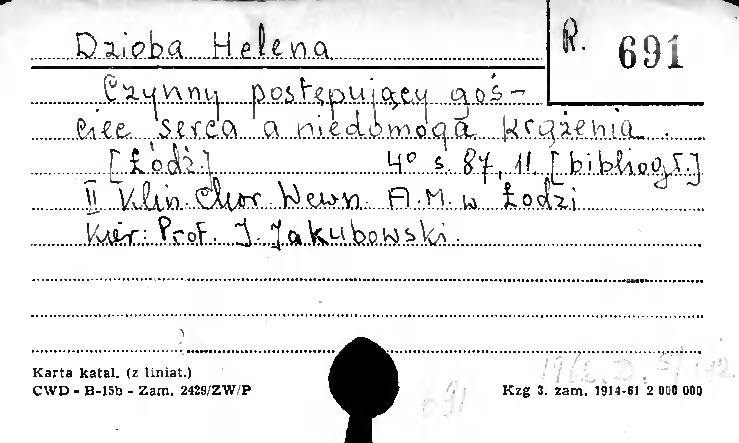 Dzioba Helena
R. 691
Czynny postępujący goś-
ciec serca a niedomoga krążenia.
[Łódź] 4° s. 87, 11. [bibliogr.]
II Klin. Chor. Wewn. A.M. w Łodzi
Kier: Prof. J. Jakubowski.
Karta katal. (z liniat.)
CWD - B-15b - Zam. 2429/ZW/P
691
Kzg 3. zam. 1914-61 2 000 000